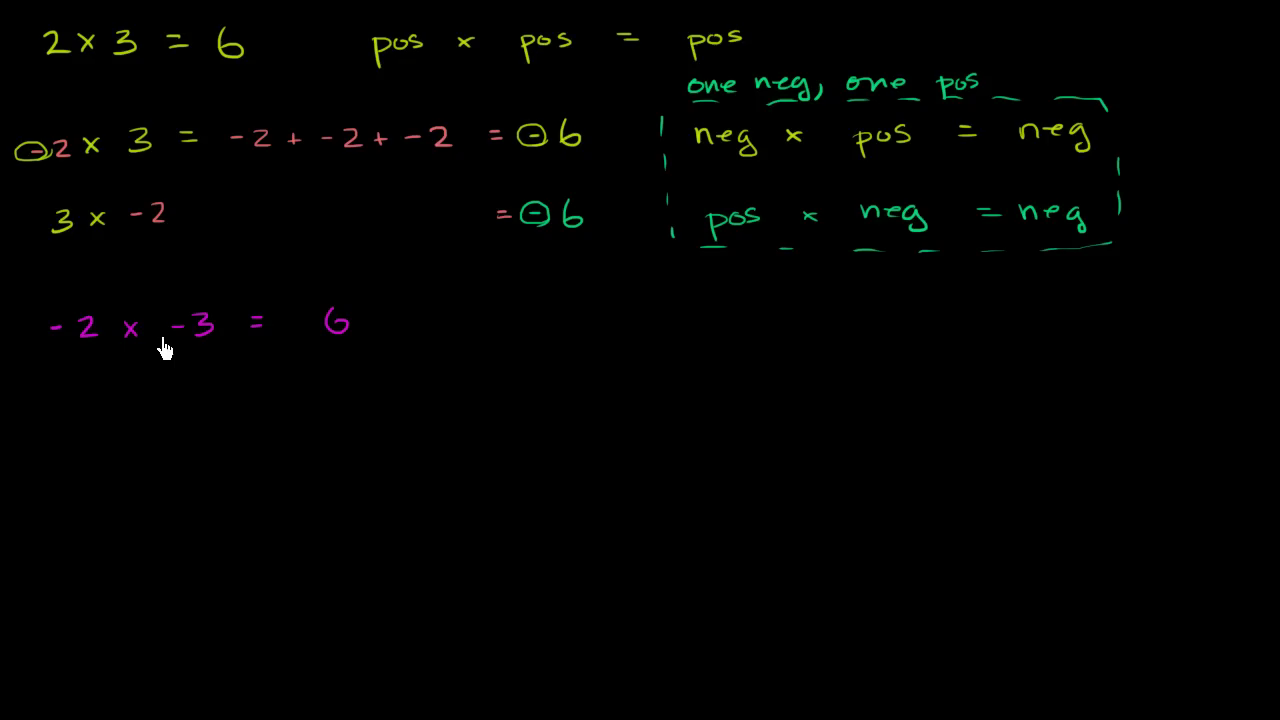 2 x 3 = 6 pos x pos = pos
one neg, one pos
-2 x 3 = -2 + -2 + -2 = -6 neg x pos = neg
3 x -2 = -6 pos x neg = neg
-2 x -3 = 6